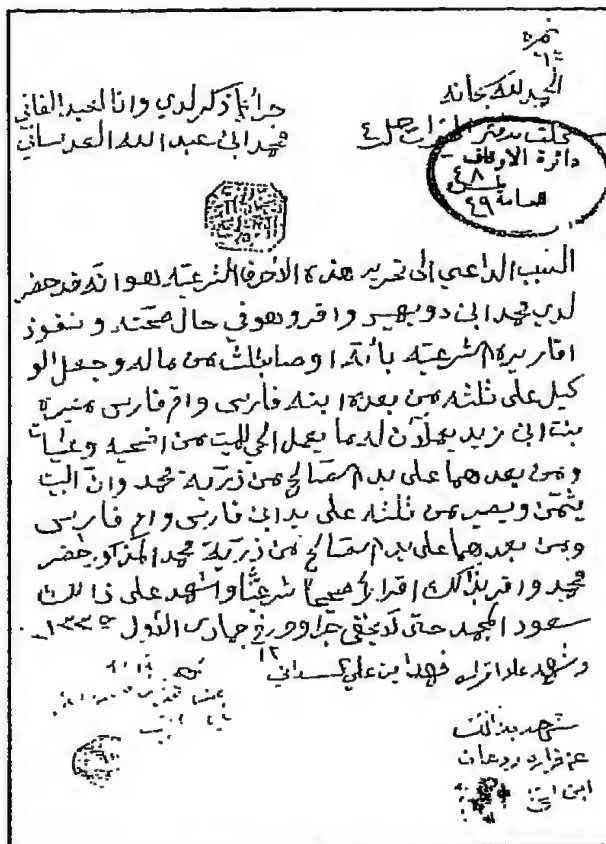 نمرة
الحمد لله سبحانه
جرا ما ذكر لدي وانا العبد الفاني
محمد ابن عبد الله العدساني
دائرة الاوقاف
٤٨
٤٩
السبب الداعي الى تحرير هذه الأحرف الشرعيه هو انه قد حضر
لدي محمد ابن دويهيس واقر وهو في حال صحته ونفوذ
اقاريره الشرعيه بأنه اوصا بثلث من ماله وجعل الو
كيل على ثلثه من بعده ابنه فارس وام فارس منيرة
بنت ابن زيد يعملان له ما يعمل الحي للميت من اضحيه وعشيات
ومن بعدهما على يد الصالح من ذرية محمد وان البيت
يثمن ويصير من ثلثه على يد ابن فارس وام فارس
ومن بعدهما على يد الصالح من ذرية محمد المذكور حضر
محمد واقر بذالك اقرارا صحيحا شرعيا واشهد على ذالك
سعود المحمد حتى لا يخفى جرا وحرر في ١٢ جمادى الأول ١٣٣٥
وشهد على اقراره فهد ابن علي
شهد بذالك
ابن